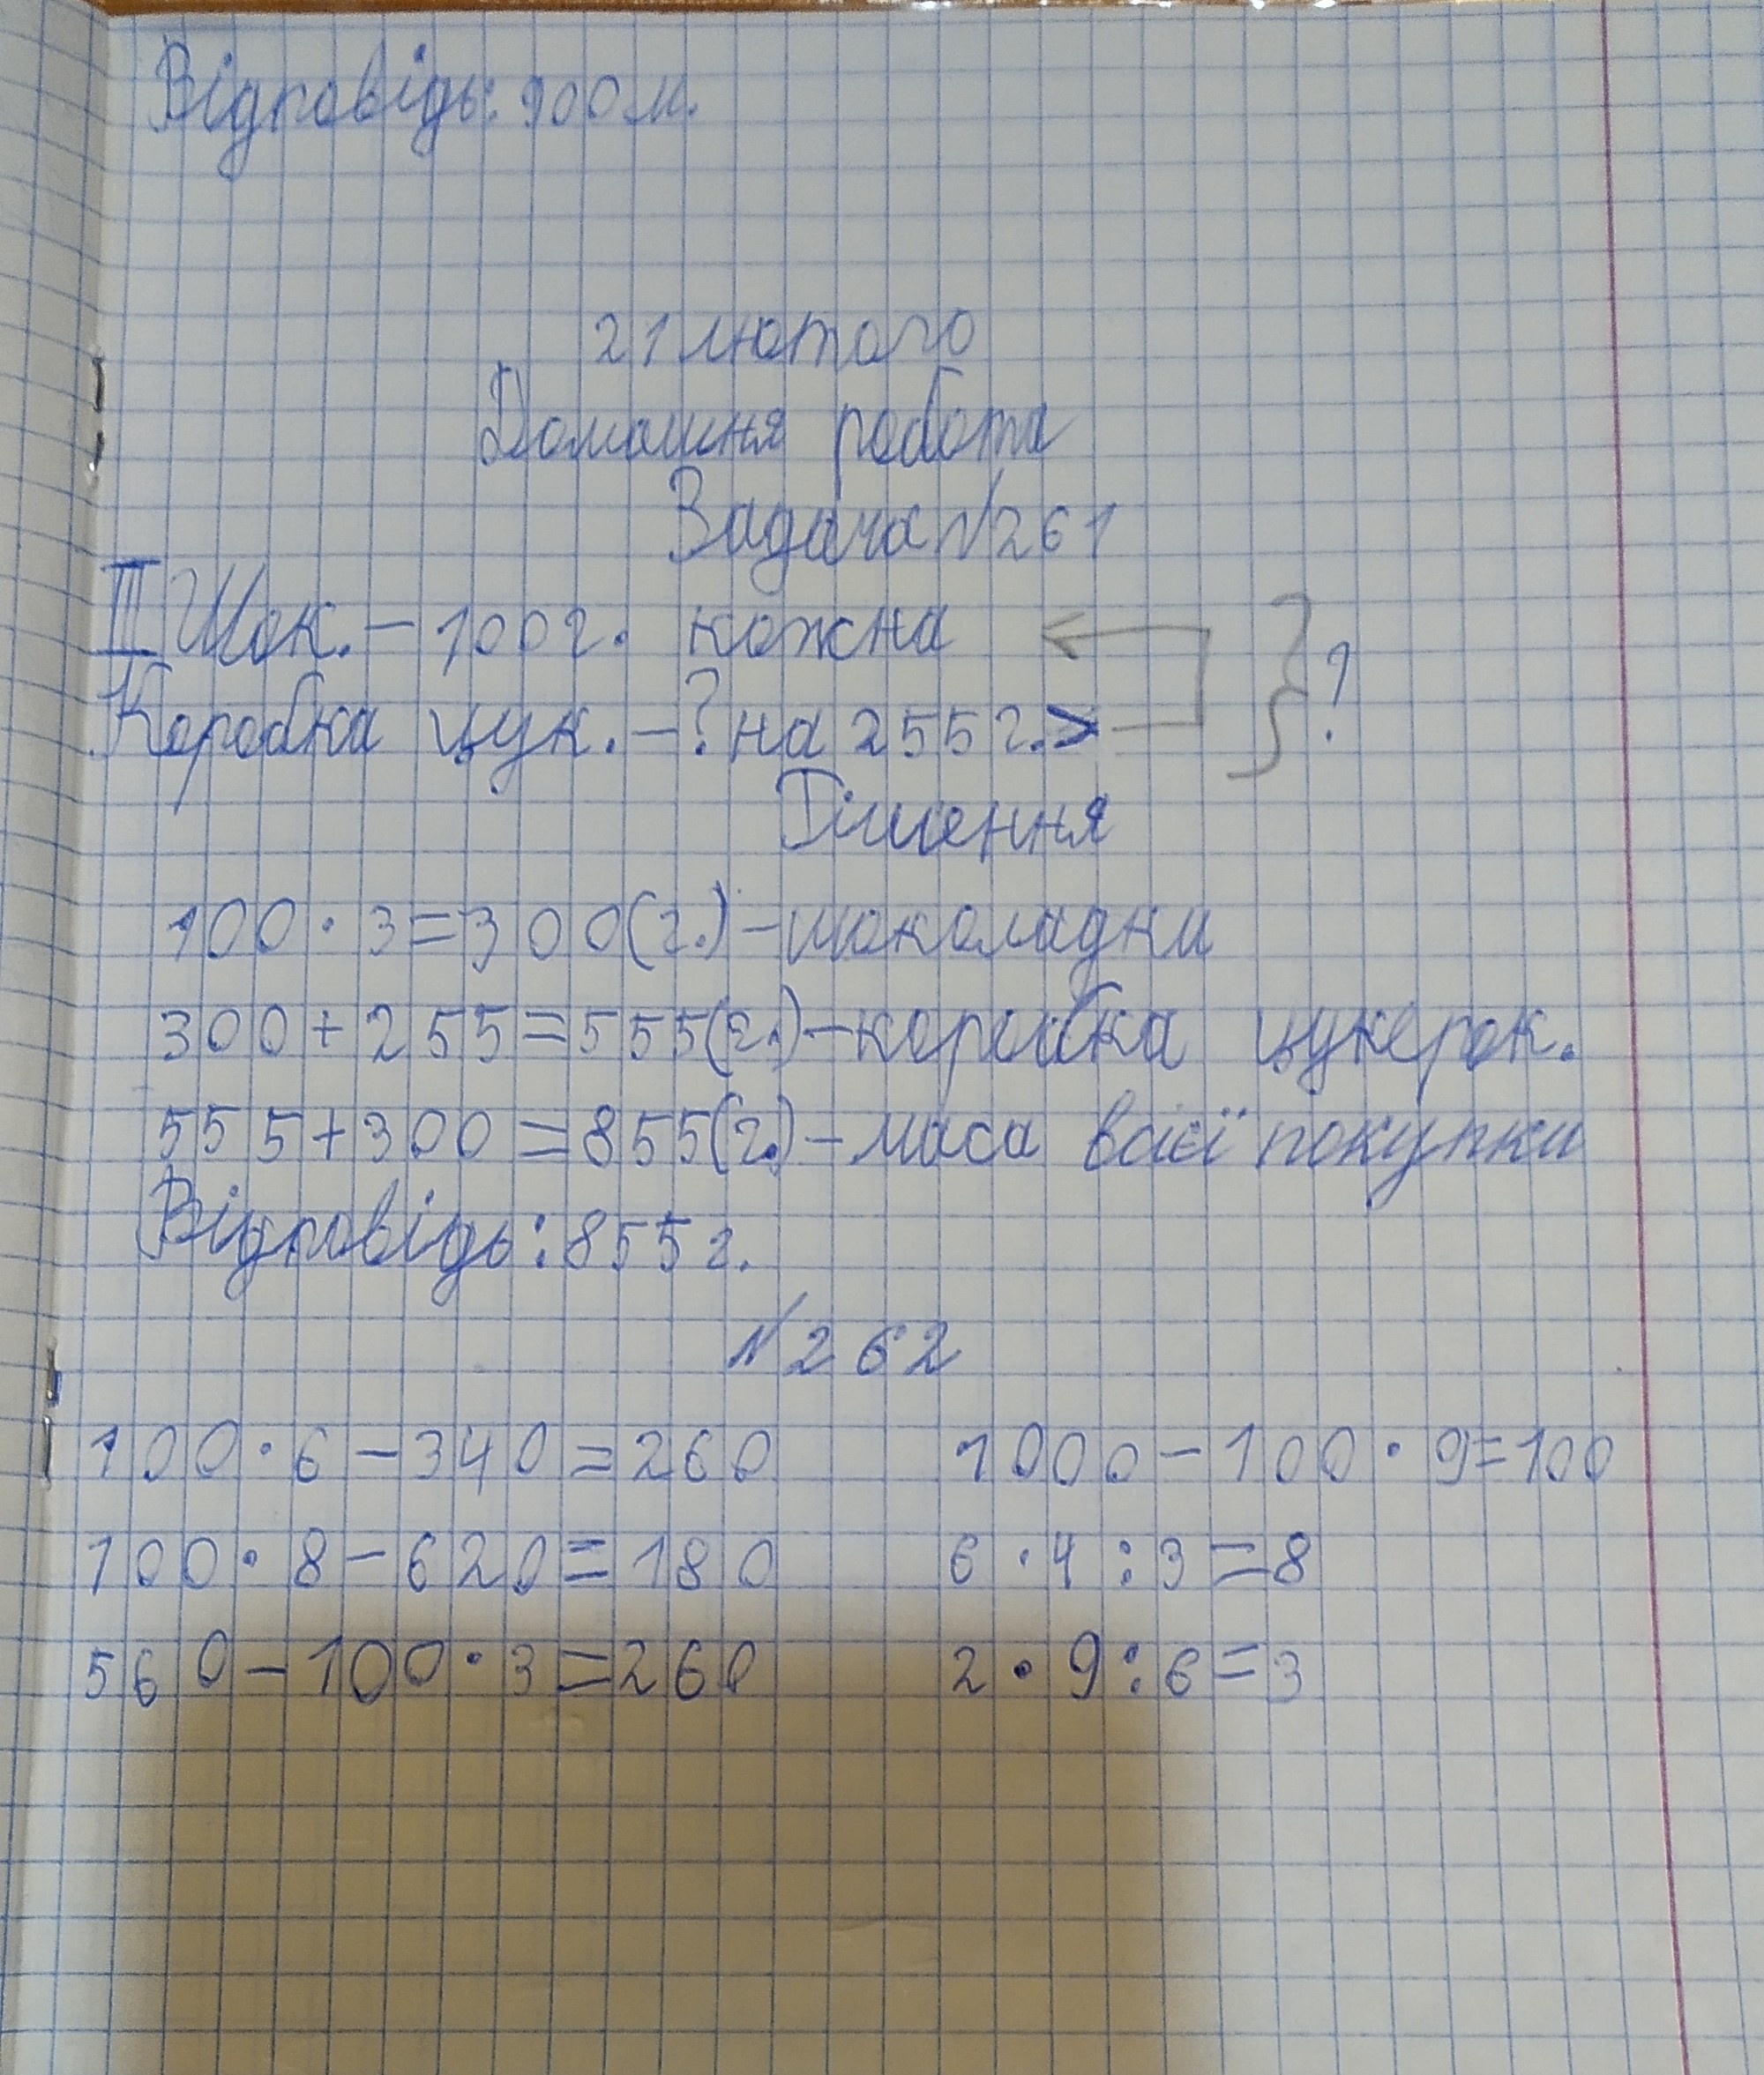 Відповідь: 900 м.
21 лютого
Домашня робота
Задача №261
III Шок. – 100 г. кожна
Коробка цук. – ? на 255 г. > ?
Рішення
100 · 3 = 300 (г.) – шоколадки
300 + 255 = 555 (г.) – коробка цукерок.
555 + 300 = 855 (г.) – маса всієї покупки
Відповідь: 855 г.
№262
100 · 6 – 340 = 260 1000 – 100 · 9 = 100
100 · 8 – 620 = 180 6 · 4 : 3 = 8
560 – 100 · 3 = 260 2 · 9 : 6 = 3